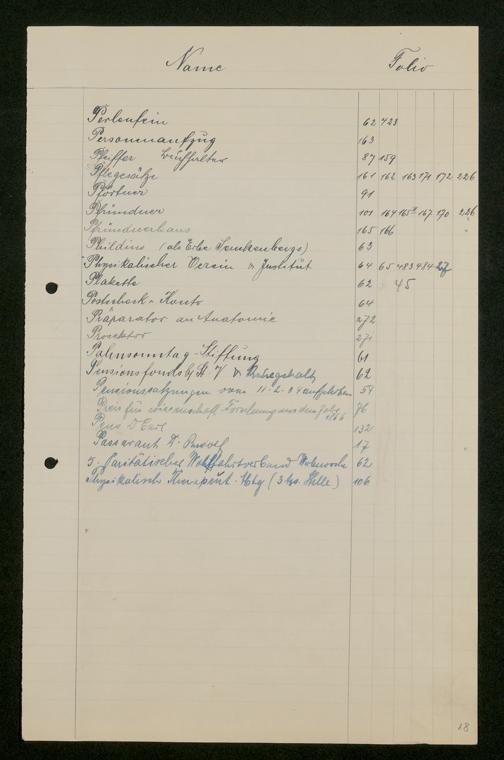 Name Folio
62 423
Personenaufzug 163
Pfeiffer Buchhalter 87 159
Pflegesätze 161 162 163 171 172 226
Pförtner 91
Pfründner 101 164 165 167 170 226
Pfründnerhaus 165 166
Phildius (als Erbe Senckenbergs) 63
Physikalischer Verein & Institut 64 65 483 484 27
Plakette 62 45
Postscheck-Konto 64
Präparator an Anatomie 272
Prosektor 271
Palmsonntag-Stiftung 61
Pensionsfonds 62
Pensionssatzungen vom 11.2.04 aufgehoben 54
Preis für wissenschaftl. Forschung 76
132
Passavant 17
5. Paritätischer Wohlfahrtsverband 62
Physikalisch Therapeut. Abtg (3 Kö. Stelle) 106
18